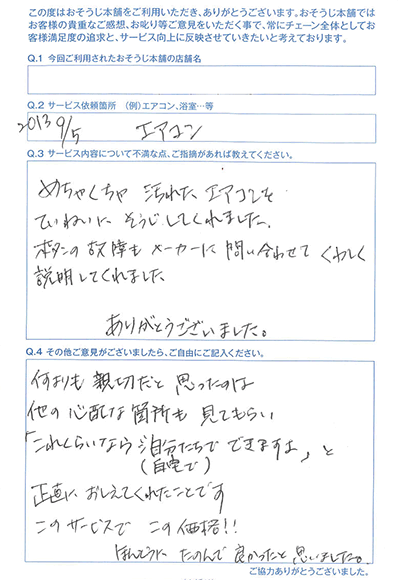 この度はおそうじ本舗をご利用いただき、ありがとうございます。おそうじ本舗では
お客様の貴重なご感想、お叱り等ご意見をいただく事で、常にチェーン全体としてお
客様満足度の追求と、サービス向上に反映させていきたいと考えております。
Q.1 今回ご利用されたおそうじ本舗の店舗名
Q.2 サービス依頼箇所 (例)エアコン、浴室…等
2013 9/5 エアコン
Q.3 サービス内容について不満な点、ご指摘があれば教えてください。
めちゃくちゃ 汚れた エアコンを
ていねいに そうじしてくれました。
ボタンの故障も メーカーに 問い合わせて くわしく
説明してくれました
ありがとうございました。
Q.4 その他ご意見がございましたら、ご自由にご記入ください。
何よりも 親切だと 思ったのは
他の 心配な箇所も 見てもらい
「これくらいなら 自分たちで できますよ」と
(自宅で)
正直に おしえてくれたことです
このサービスで この価格!!
ほんとうに たのんで 良かったと 思いました。
ご協力ありがとうございました。